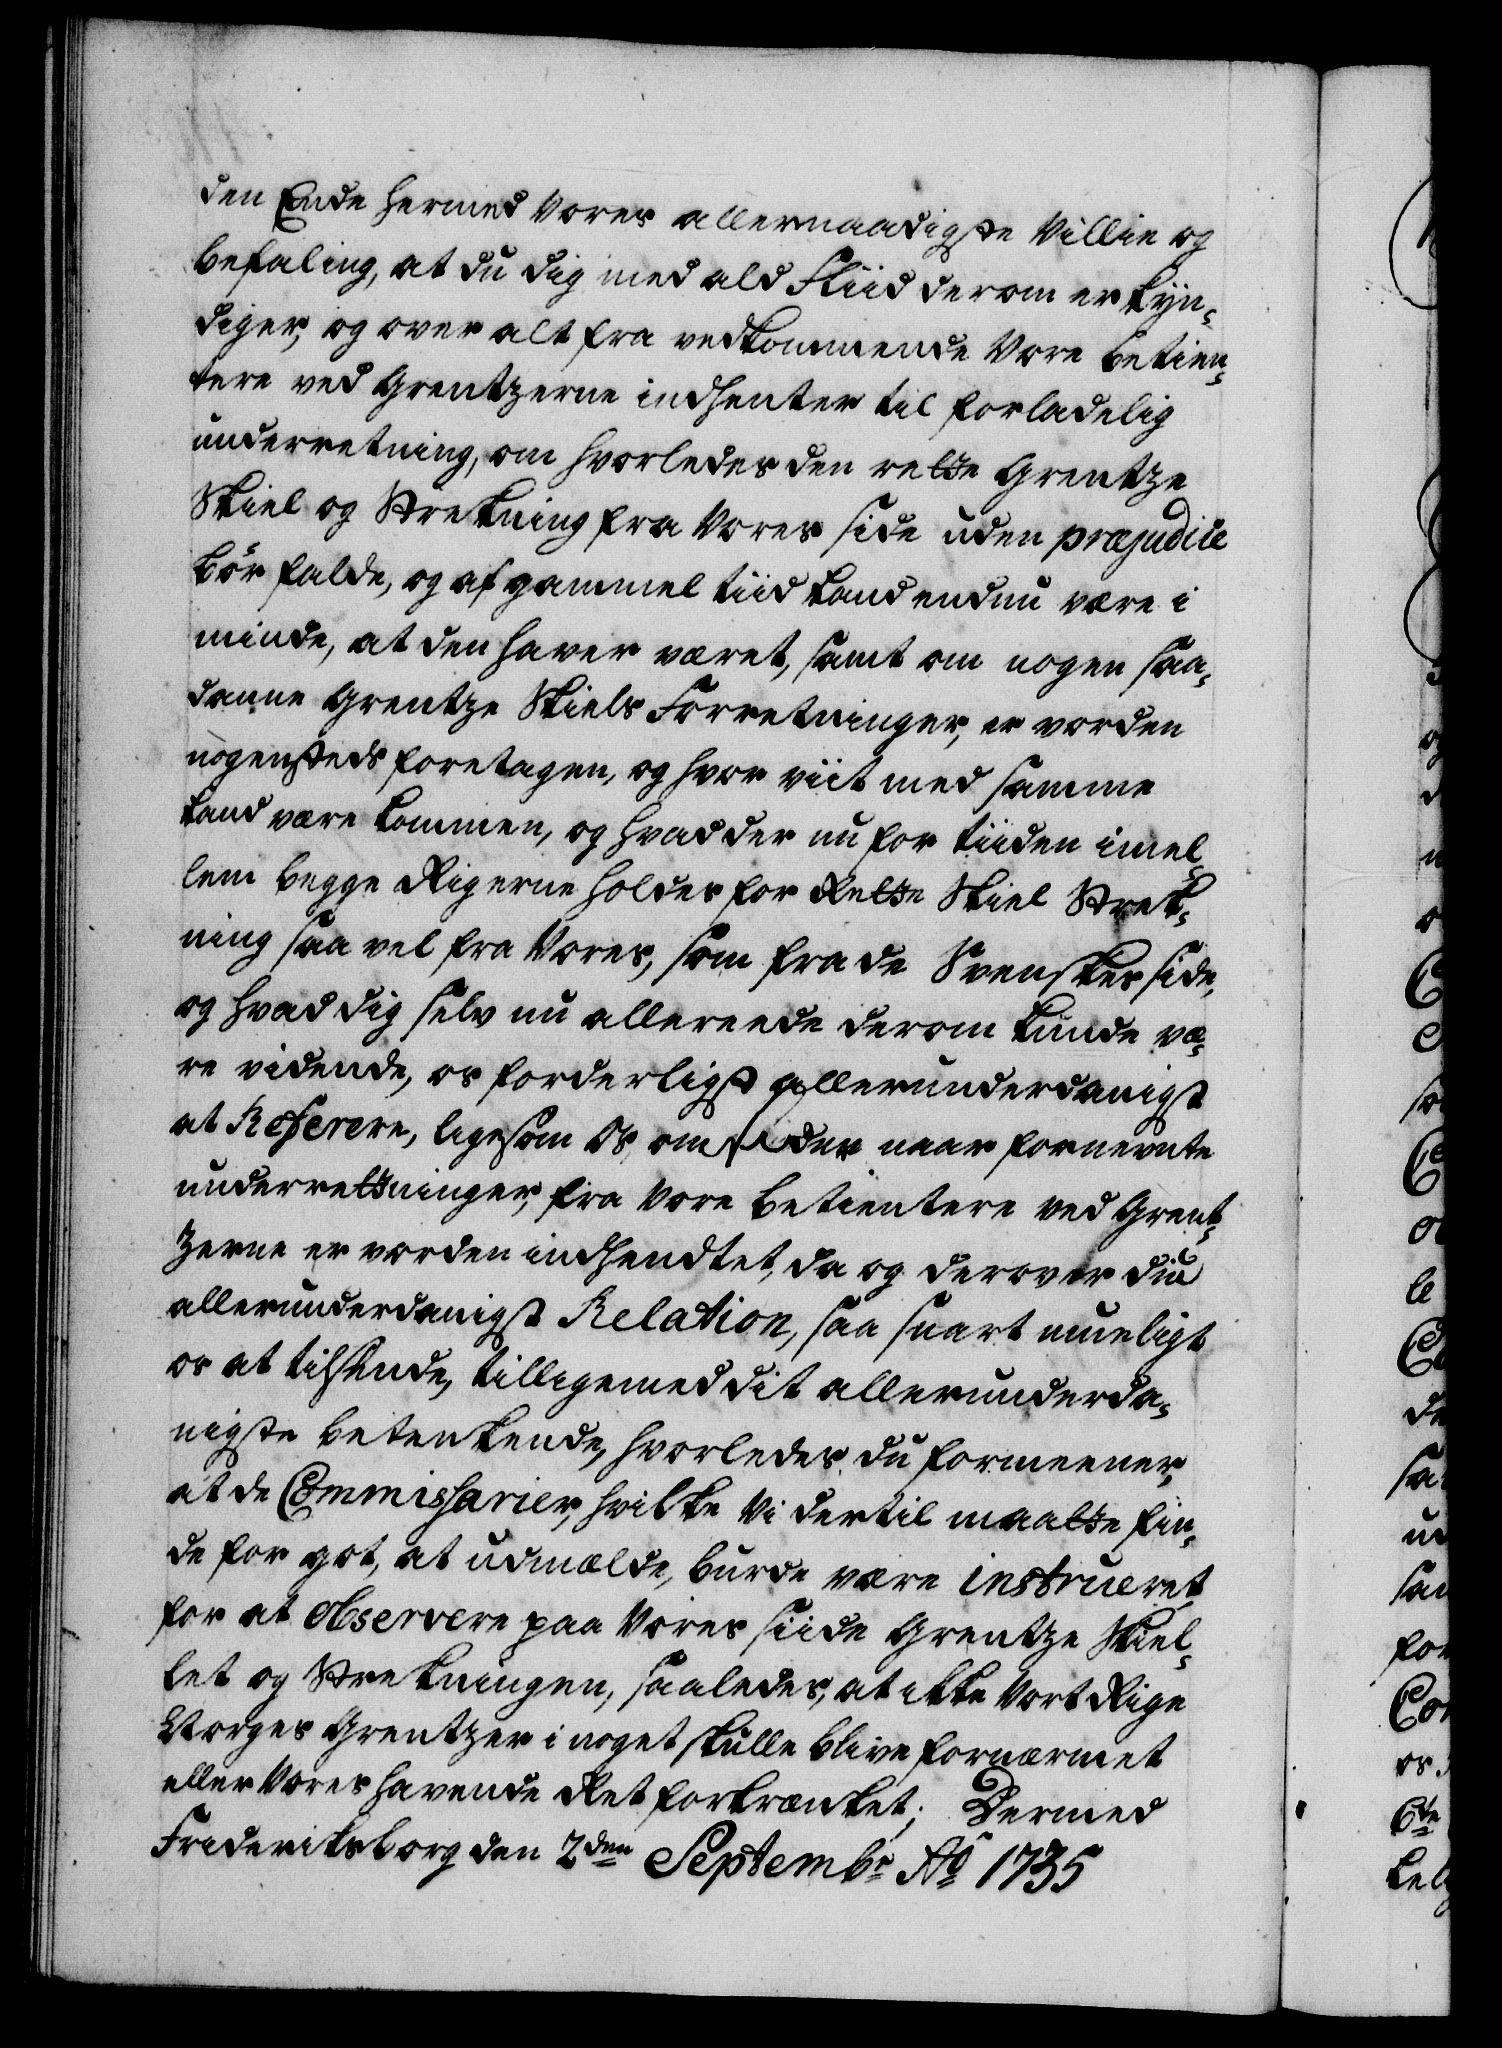 den Ende hermed Vores allernaadigste Villie og
befaling, at du dig med ald Fliid derom er kyn¬
diger, og over alt fra vedkommende Vore betien¬
tere ved Grentzerne indhenter til forladelig
underretning, om hvorledes den rette Grentze
Skiel og Strekning fra Vores side uden præjudice
bör falde, og af gammel tiid kand endnu være i
minde, at den haver været, samt om nogen saa¬
danne Grentze Skiels Forretninger, er vorden
nogensteds foretagen, og hvor viit med samme
kand være kommen, og hvad der nu for tiiden imel¬
lem begge Rigerne holdes for Rette Skiel Strek¬
ning saa vel fra Vores, som fra de Svenskes side,
og hvad dig selv nu allereede derom kunde væ¬
re vidende, os forderligst allerunderdanigst
at Referere, ligesom Os om der naar fornevnte
underretninger, fra Vore betientere ved Grent¬
zerne er vorden indhendtet, da og derover din
allerunderdanigst Relation, saa snart mueligt
os at tilsende, tilligemed dit allerunderda¬
nigste betenkende, hvorledes du formeener,
at de Commissarier, hvilke Vi dertil maatte fin¬
de for got, at udmælde, burde være instrueret
for at observere paa Vores siide Grentze Skiel¬
let og Strekningen, saaledes, at ikke Vort Rige
Norges Grentzer i noget skulle blive fornærmet
eller Vores havende Ret forkrænket; Dermed
Frideriksborg den 2den Septembr Ao 1735